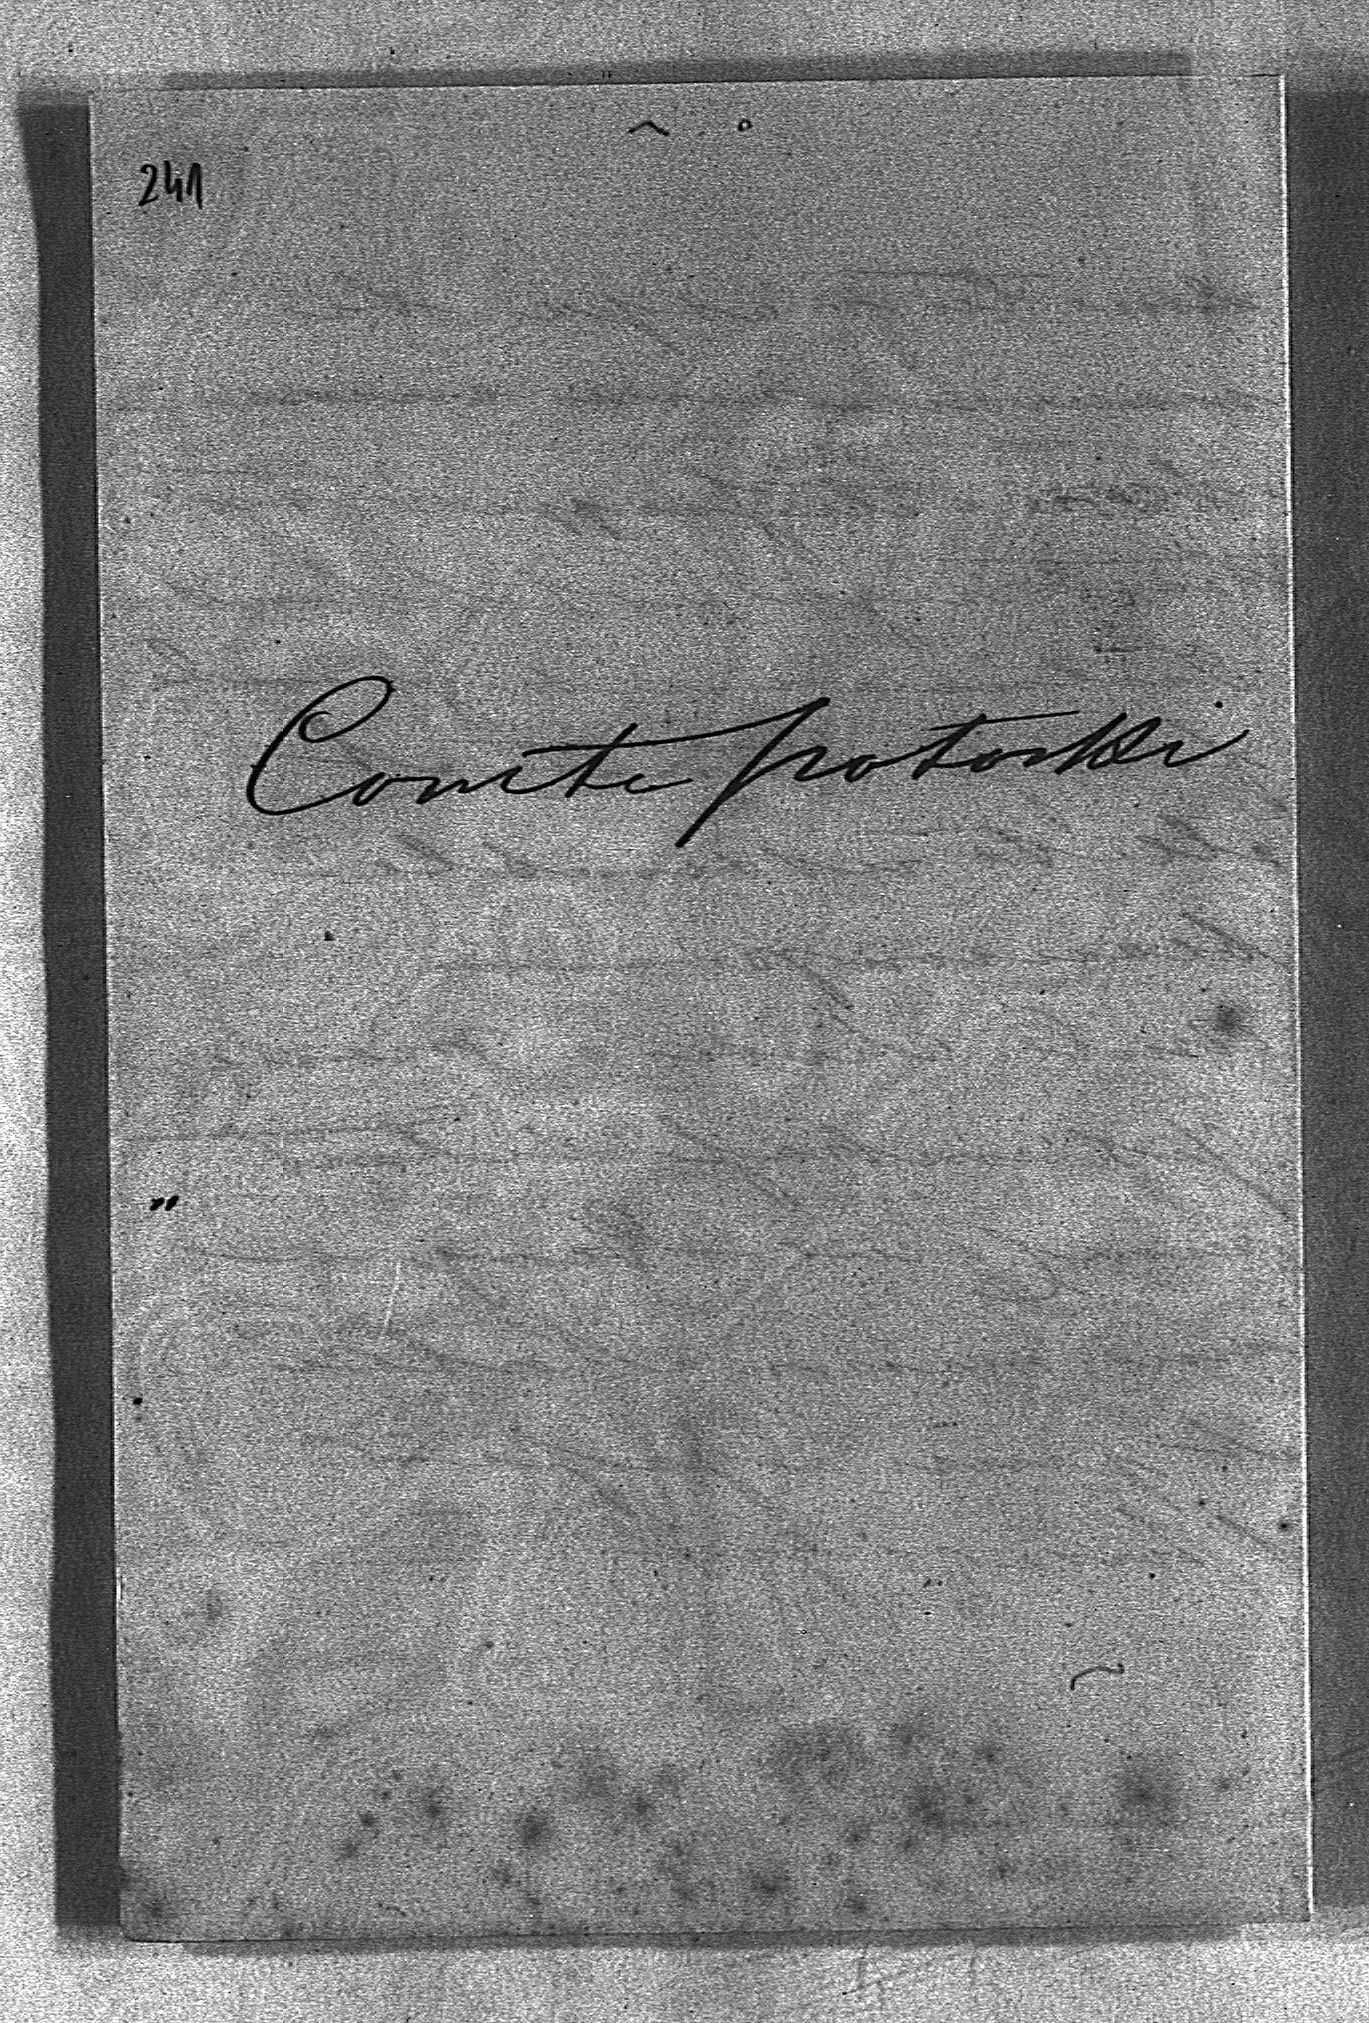 241
Comte potocki